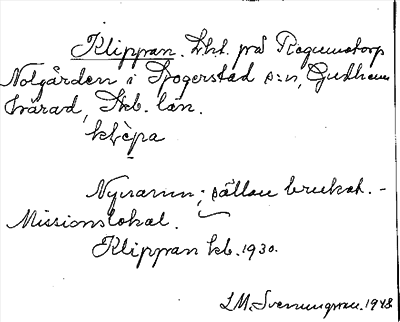 Klippan. Lht. på Ragnestorp
Nolgården i Sjogerstad s:n, Gudhems
härad, Skb. län.
klèpa
Nynamn; sällan brukat. -
Missionslokal.
Klippan kb. 1930.
L. M. Svenungsson. 1948